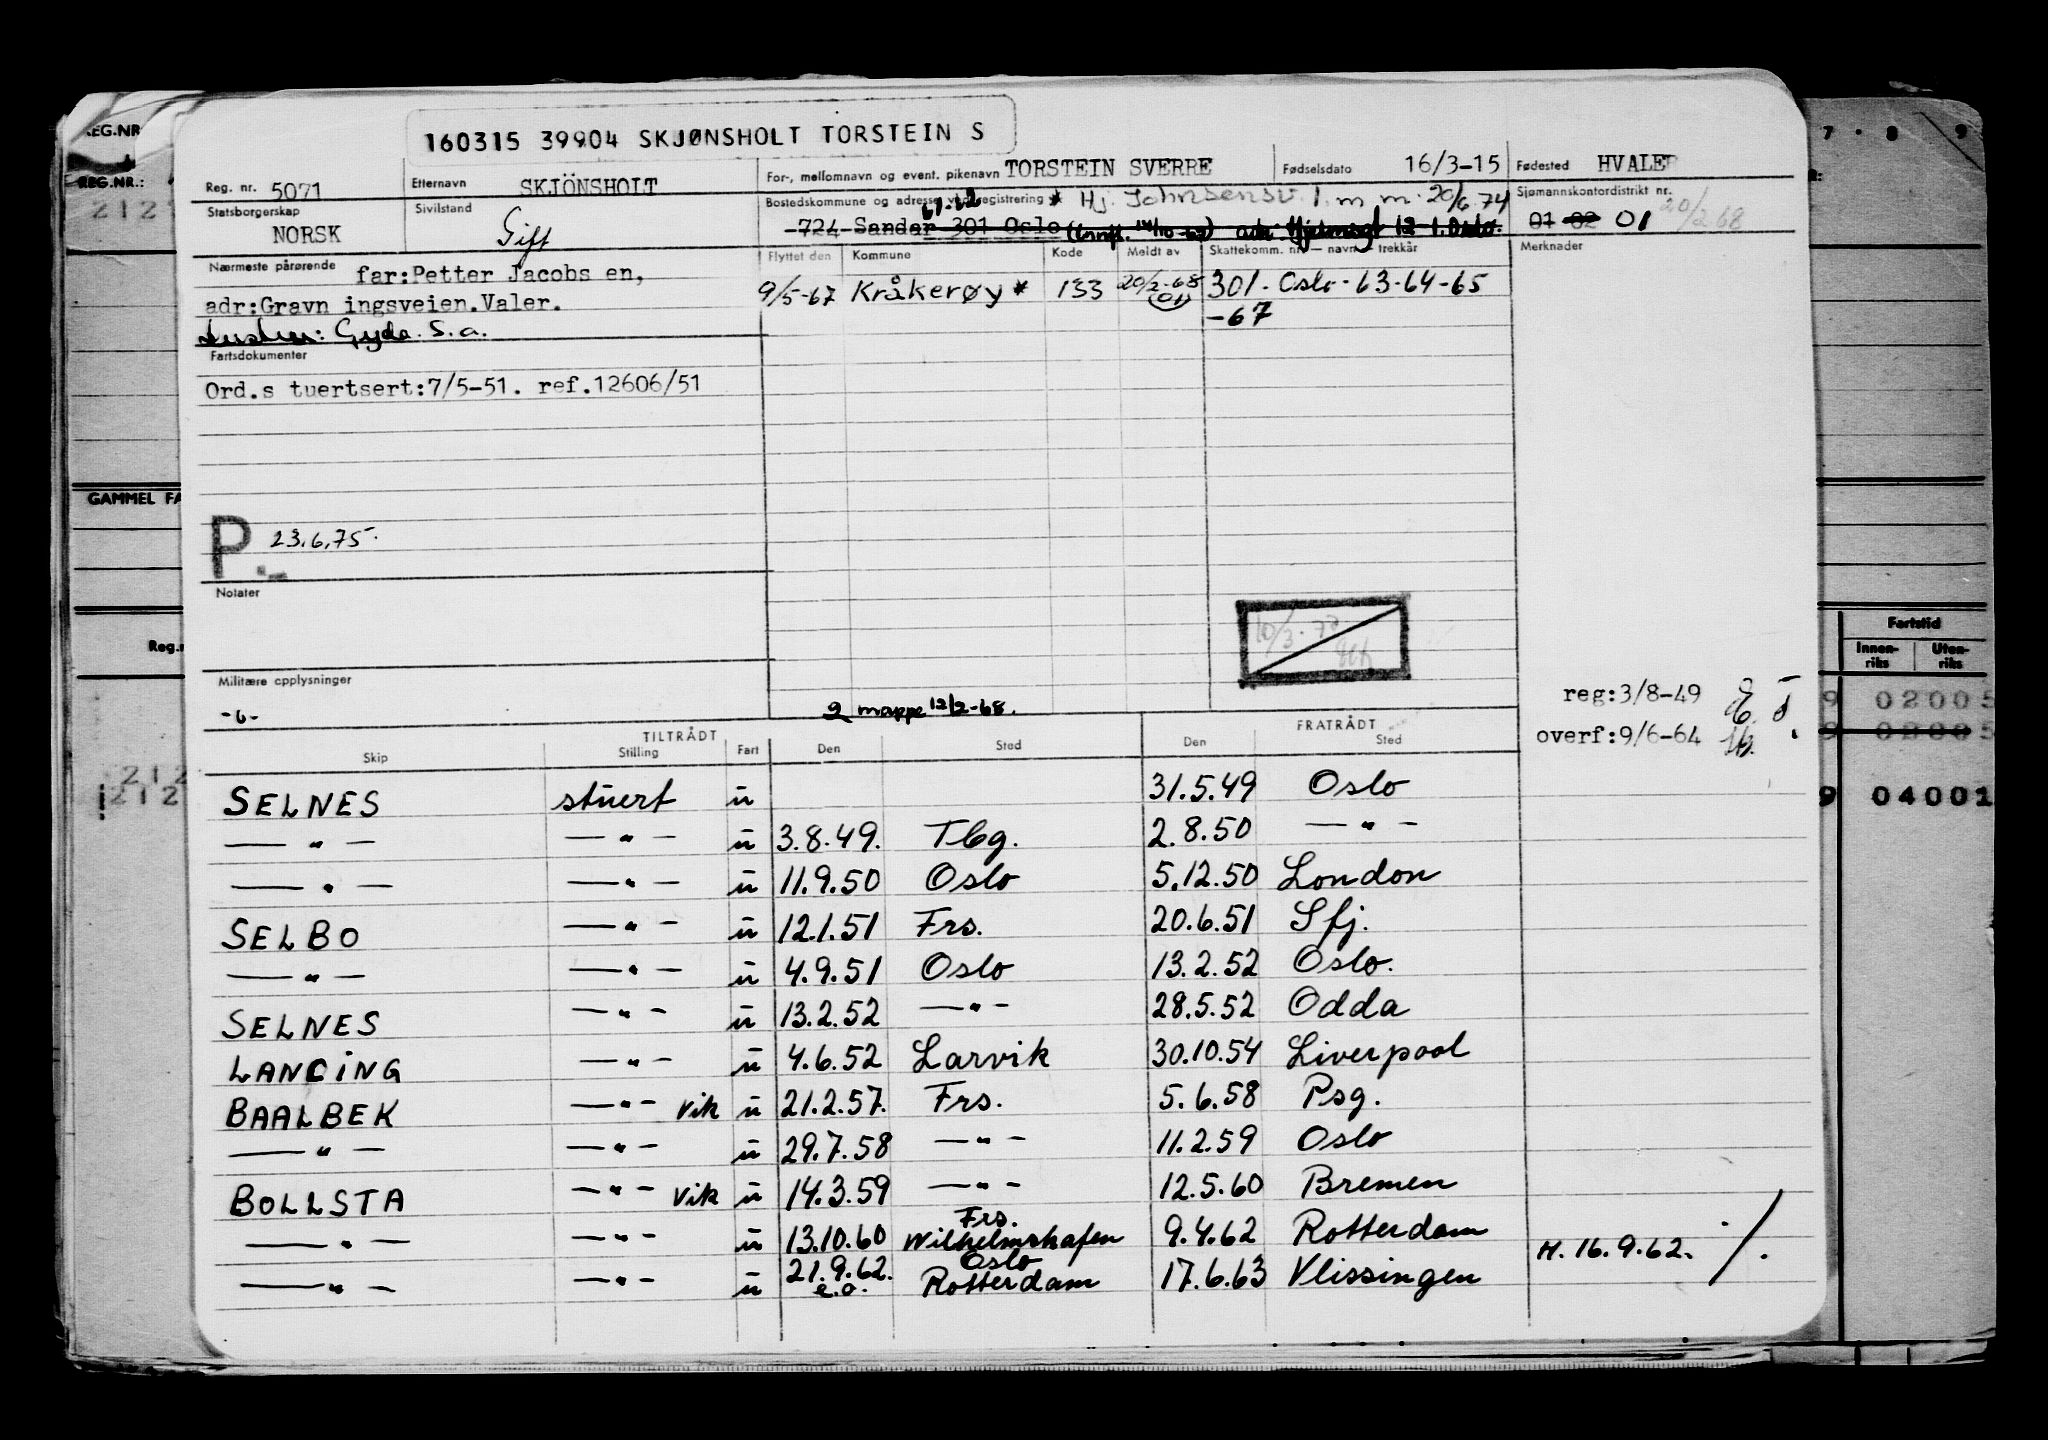 160315 39904 SKJØNSHOLT TORSTEIN S
Reg. nr. 5071 Etternavn SKJÖNSHOLT For-, mellomnavn og event. pikenavn TORSTEIN SVERRE Fødselsdato 16/3-15 Fødested HVALER
Statsborgerskap NORSK Sivilstand Gift Bostedskommune og adresse ved registrering * Hj. Johnsensv. 1. m m. 20/6 74 Sjømannskontordistrikt nr. 01 02 01 20/2 68
61-62
724 Sandar 301 Oslo 12 1. Oslo.
Nærmeste pårørende far:Petter Jacobs en,
adr:Gravn ingsveien.Valer.
Gyda. S.a.
Flyttet den Kommune Kode Meldt av Skattekomm. nr. — navn — trekkår Merknader
9/5-67 Kråkerøy * 133 20/2-68 (01) 301. Oslo. 63-64-65
-67
Fartsdokumenter
Ord.s tuertsert:7/5-51. ref.12606/51
P. 23.6.75.
Notater
10/3.
Militære opplysninger
-6-
2 mappe 12/2-68.
reg:3/8-49
overf:9/6-64
TILTRÅDT FRATRÅDT
Skip Stilling Fart Den Sted Den Sted
SELNES stuert u 31.5.49 Oslo
—"— —"— u 3.8.49. Tbg. 2.8.50 —"—
—"— —"— u 11.9.50 Oslo 5.12.50 London
SELBO —"— u 12.1.51 Frs. 20.6.51 Sfj.
—"— —"— u 4.9.51 Oslo 13.2.52 Oslo.
SELNES —"— u 13.2.52 —"— 28.5.52 Odda
LANCING —"— u 4.6.52 Larvik 30.10.54 Liverpool
BAALBEK —"— vik u 21.2.57. Frs. 5.6.58 Psg.
—"— —"— u 29.7.58 —"— 11.2.59 Oslo
BOLLSTA —"— vik u 14.3.59 —"— 12.5.60 Bremen
—"— —"— u 13.10.60 Frs. Wilhelmshafen 9.4.62 Rotterdam H. 16.9.62. ./.
—"— —"— u 21.9.62. e.o. Oslo Rotterdam 17.6.63 Vlissingen
REG.NR
REG.NR.:
212
GAMMEL FA
Reg.n
212
212
7 . 8 9
Fartstid
Innen-riks Uten-riks
9 02005
9 02005
9 04001